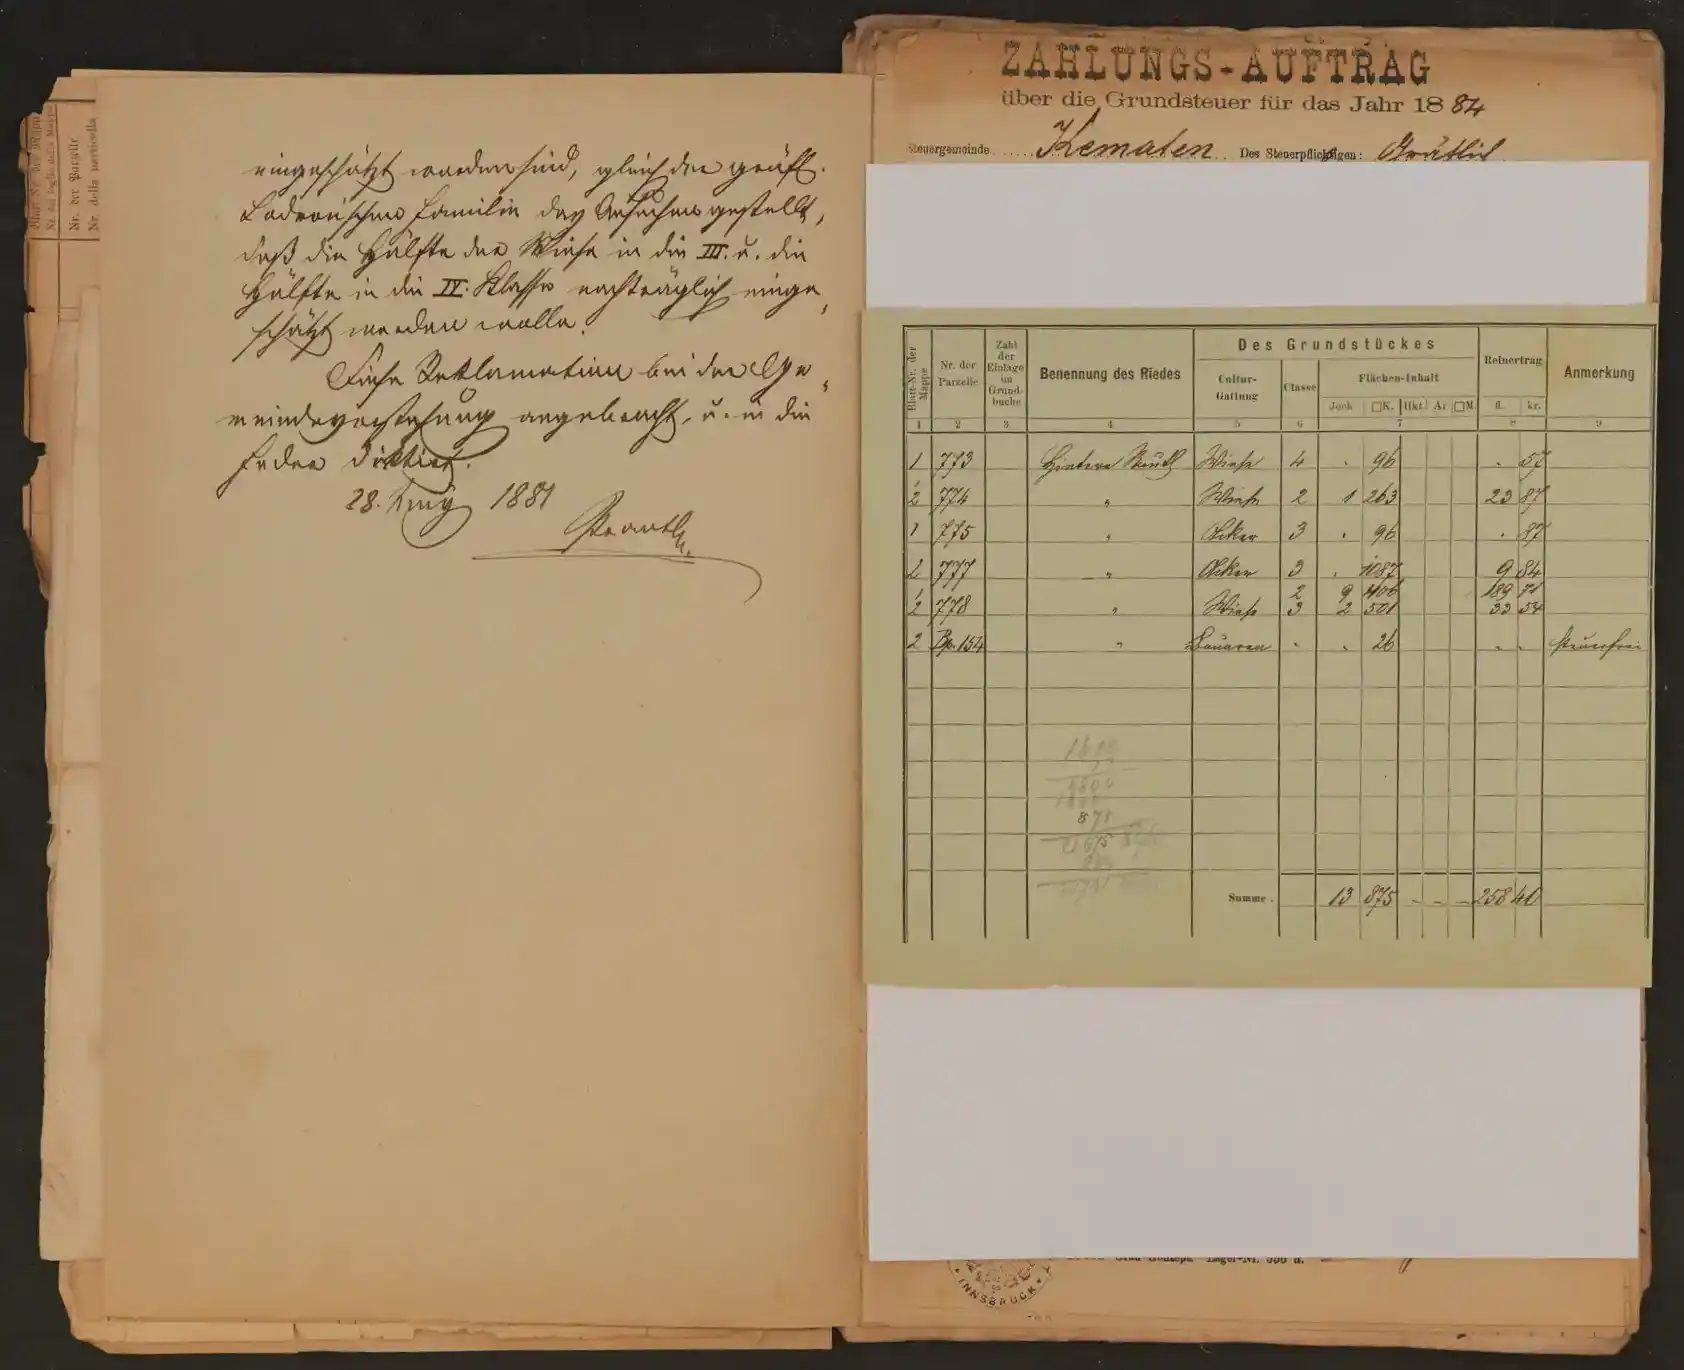 Blatt-Nr. der Mappe
Nr. del foglio della Mappa
Nr. der Parzelle
Nr. della particella
eingeschätzt worden sind, gleich der gräfl.
Lodronischen Familie das Ansuchen gestellt,
daß die Hälfte der Wiese in die III. u. die
Hälfte in die IV. Klasse nachträglich einge
schätzt werden wolle.
Diese Reklamation bei der Ge
meindevorstehung angebracht, u. in die
Feder diktirt.
28. Aug 1881
ZAHLUNGS-AUFTRAG
über die Grundsteuer für das Jahr 1884
Steuergemeinde Kematen Des Steuerpflichtigen:
Blatt-Nr. der Mappe
Nr. der Parzelle
Zahl der Einlage im Grundbuche
Benennung des Riedes
Des Grundstückes
Cultur-Gattung
Classe
Flächen-Inhalt
Joch □K. Hkt. Ar □M.
Reinertrag
fl. kr.
Anmerkung
1 2 3 4 5 6 7 8 9
1 773 Hintere Wiese 4 . 96 . 57
2 774 " Wiese 2 1 263 23 87
1 775 " Acker 3 . 96 . 87
2 777 " Acker 3 . 1087 9 84
2 9 1106 189 71
2 778 " Wiese 3 2 501 33 54
2 Bp. 154 " Bauarea - . 26 - - steuerfrei
Summe . 13 875 - - - 258 40
INNSBRUCK